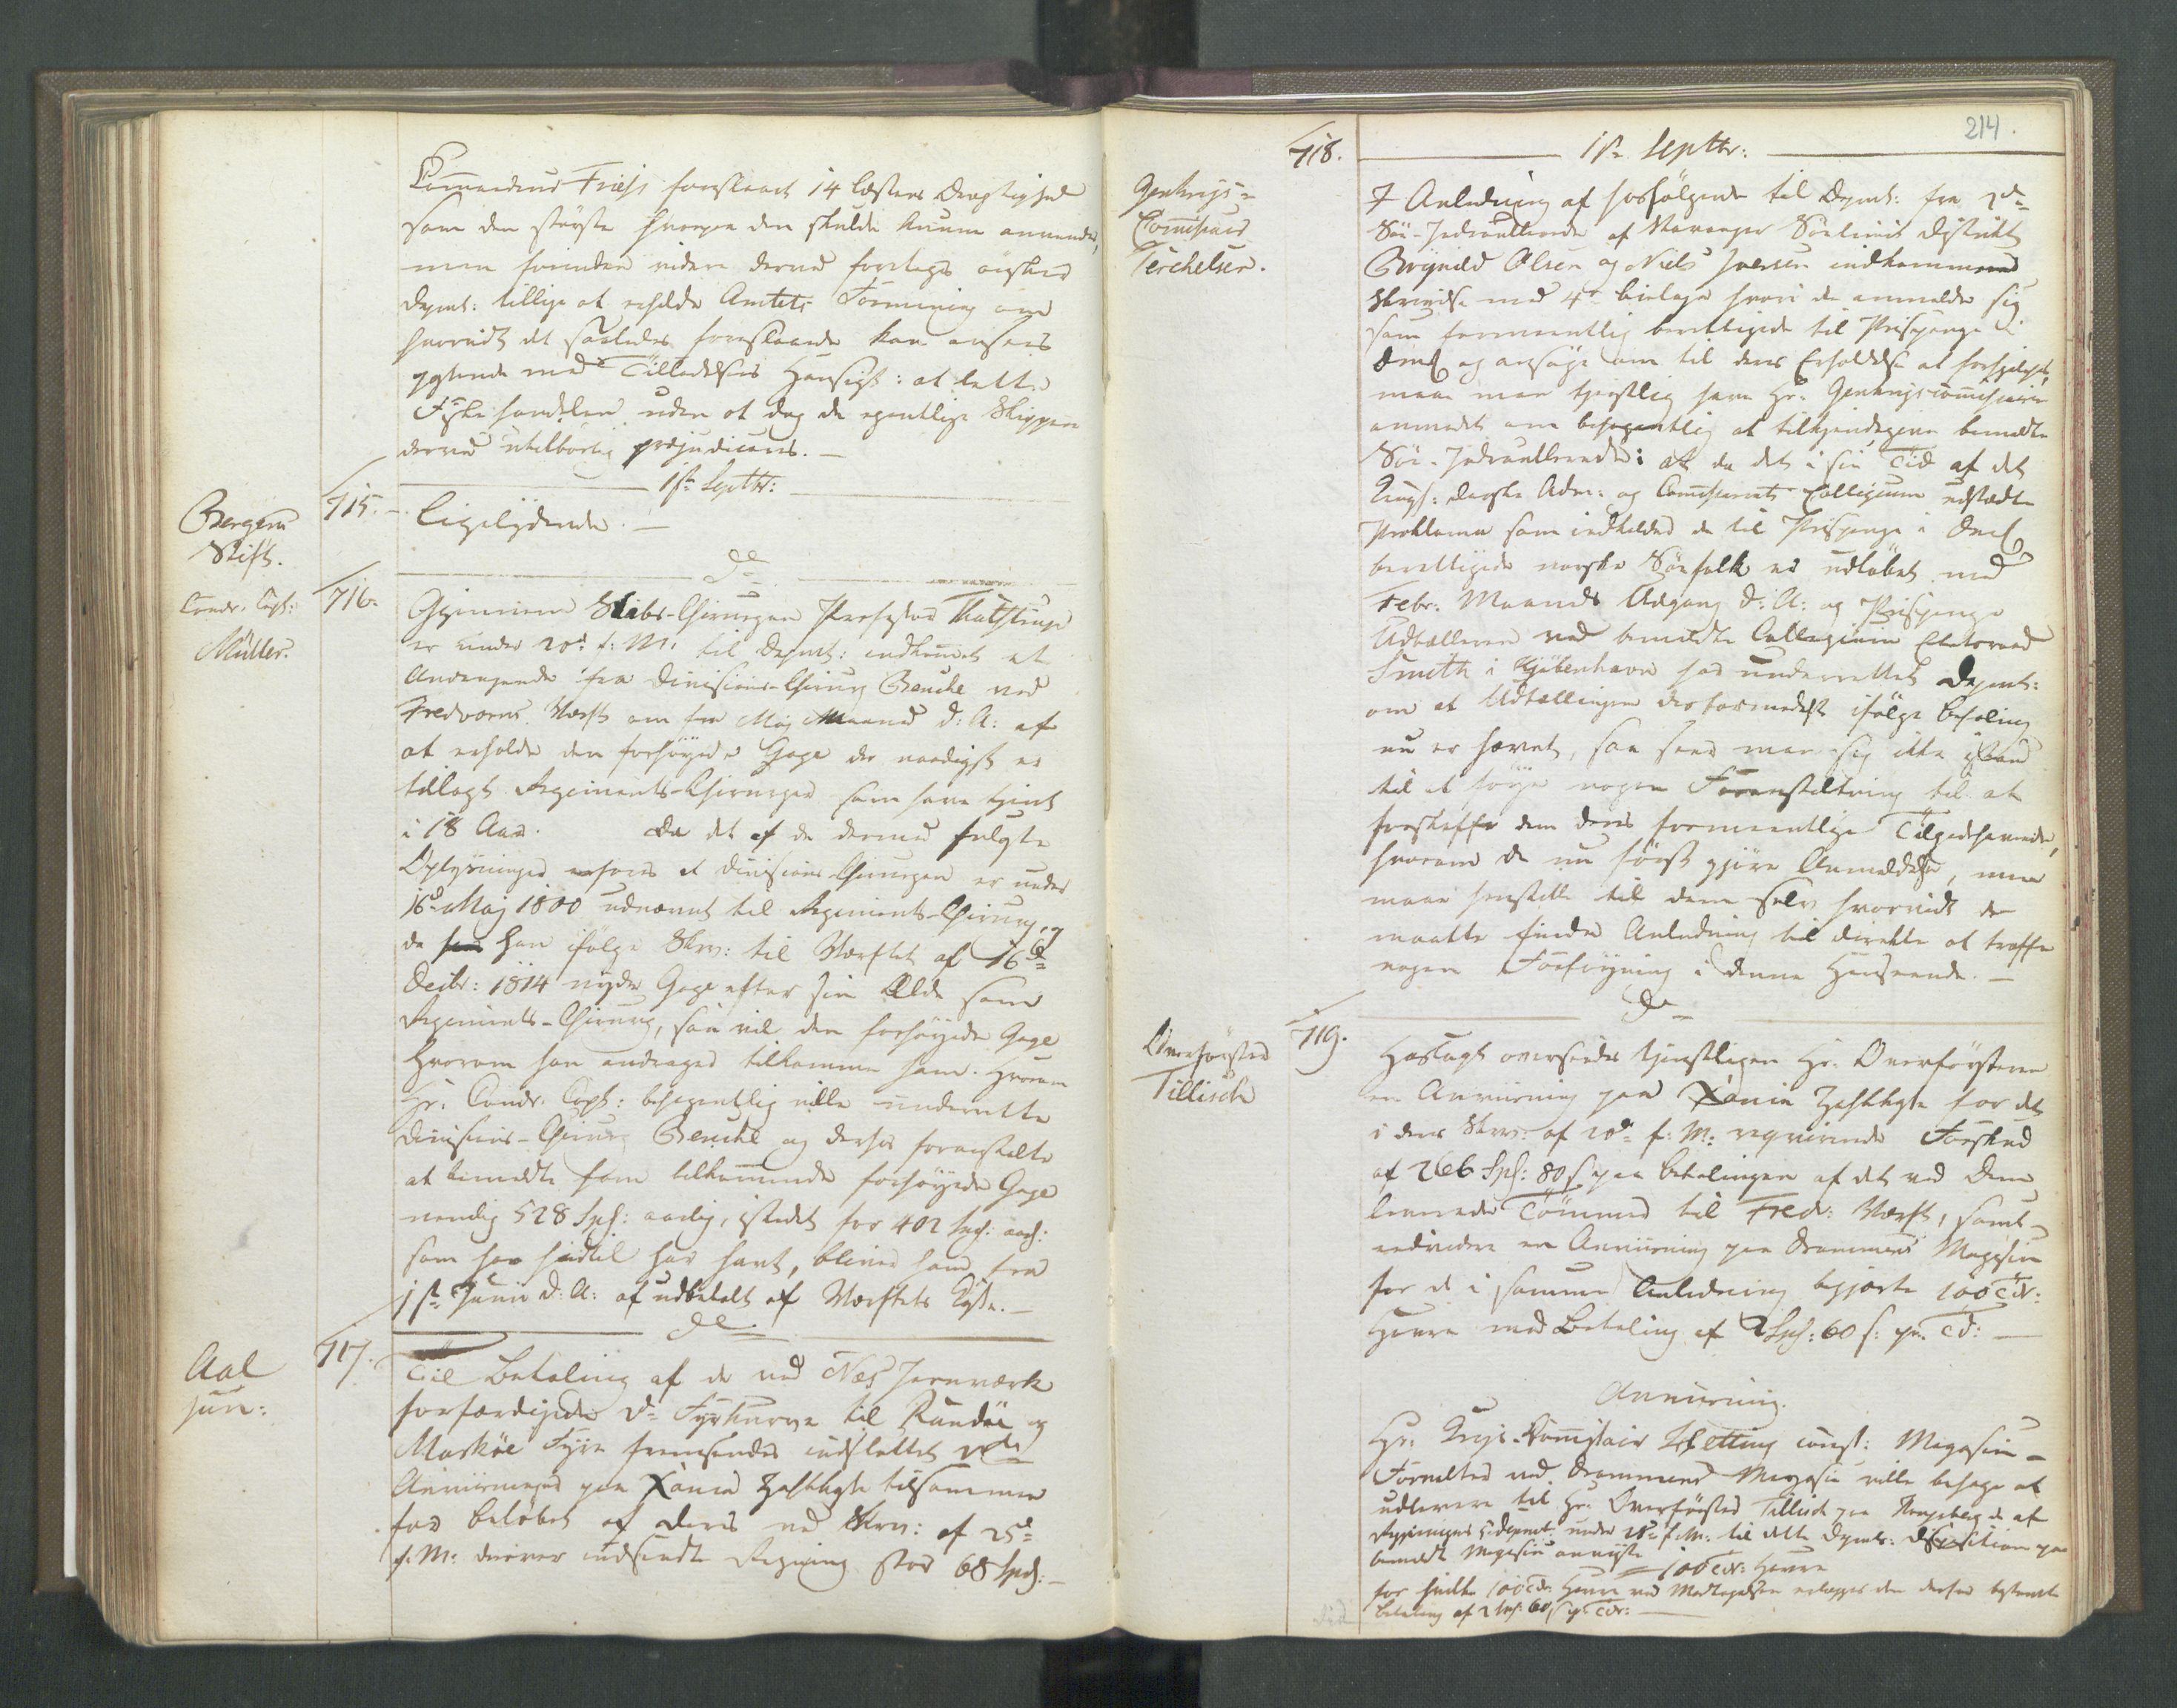 Commandeur Friess foreslaaet 14 Læsters Drægtighed
som den største hvorpaa den skulde kunne anvendes,
men forinden videre derved foretages ønsker
Depmt: tillige at erholde Amtets Formening om
hvorvidt det saaledes foreslaaede kan ansees
grundet med Tilladelsens Hensigt: at lette
Fiskehandelen uden at dog de egentlige Skippere
derved utilbørlig præjudiceres. —
1ste Septbr:
Bergens
Stift.
715.
Ligelydende. —
do
Comdr. Capt:
Müller.
716.
Gjennem Stabs-Chirurgen Professor Thulstrup
er under 20de f: M: til Depmt: indkommet et
Andragende fra Divisions-Chirurg Benche ved
Fredværns Værft om fra Maj Maaned d: A: af
at erholde den forhøyede Gage der naadigst er
tillagt Regiments-Chirurger som have tjent
i 18 Aar. Da det af de derved fulgte
Oplysninger erfares at Divisions-Chirurgen er under
16de Maj 1800 udnævnt til Regiments-Chirurg,
da han ifølge Skriv: til Værftet af 16de
Decbr: 1814 nyder Gage efter sin Alder som
Regiments-Chirurg, saa vil den forhøyede Gage
hvorom han andrager tilkomme ham. Hvorom
Hr. Comdr. Capt: behagentlig ville underrette
Divisions-Chirurg Benche og derhos foranstalte
at bemeldte ham tilkommende forhøyede Gage
nemlig 528 Spd: aarlig, istedet for 402 Spd: aarl:
som han hidtil har havt, bliver ham fra
1ste Junii d: A: af udbetalt af Værftets Casse. —
do
Aal
jun:
717.
Til Betaling af de ved Næs Jernværk
forfærdigede 2de Fyrkurve til Rundøe og
Markøe Fyre fremsendes indsluttet 2de
Anviisninger paa Xania Zahlkasse tilsammen
for Beløbet af deres ved Skriv: af 25de
f: M: derover indsendte Regning stor 68 Spd: —
214.
718.
1ste Septbr:
Genkrigs-
Commissair
Terchelsen.
I Anledning af hosfølgende til Depmt: fra 2de
Søe-Indrullerede af Stavanger Sølimits District
Brynild Olsen og Niels Iversen indkommende
Skrivelse med 4de Bielage hvori de anmelder sig
som formeentlig berettigede til Prispenge i
Dmk og ansøge om til deres Erholdelse at forhjelpes,
maa man tjenstlig have Hr. Genkrigscommissairen
anmodet om behagentlig at tilkjendegive bemeldte
Søe-Indrullerede: at da det i sin Tid af det
Kongl: danske Adm: og Commissariats Collegium udstædte
Proklama som indkaldte de til Prispenge i Dmk
berettigede norske Søefolk er udløbet med
Febr: Maaneds Udgang d: A: og Prispenge
Udtælleren ved bemeldte Collegium Etatsraad
Smith i Kjøbenhavn har underrettet Depmt:
om at Udtællingen desformedelst ifølge Befaling
nu er hævet, saa seer man sig ikke istand
til at føye nogen Foranstaltning til at
forskaffe dem deres formeentlige Tilgodehavende,
hvorom de nu først gjøre Anmeldelse, men
maa henstille til dem selv hvorvidt de
maatte finde Anledning til directe at træffe
nogen Forføyning i denne Henseende. —
do
Overførster
Tillisch
719.
Hoslagt oversendes tjenstligen Hr. Overførsteren
en Anviisning paa Xania Zahlkasse for det
i Deres Skriv: af 20de f: M: reqvirerede Forskud
af 266 Spd: 80 s paa Betalingen af det ved Dem
leverede Tømmer til Fred: Værft, samt
endvidere en Anviisning paa Drammens Magasin
for de i samme Anledning begjærte 100 Tdr:
Havre mod Betaling af 2 Spd: 60 s: pr. Td: —
Anviisning.
Hr. Krigs-Commissair Schetting const: Magasin-
Forvalter ved Drammens Magasin ville behage at
udlevere til Hr. Overførster Tillisch paa Kongsberg de af
Regjeringens 5 Depmt: under 28de f: M: til dette Depmts: Disposition paa
bemeldte Magasin anviiste 100 Tdr: Havre
for hvilke 100 Tdr. Havre ved Modtagelsen erlægges den derfor bestemte
Betaling af 2 Spd: 60 s pr Tdr: —